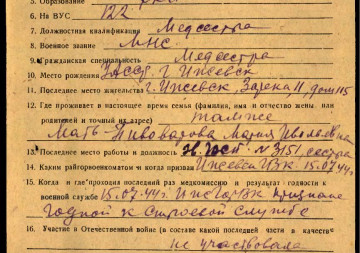 5. Образование
6. На ВУС 122
7. Должностная квалификация Медсестра
8. Военное звание МНС
9. Гражданская специальность Медсестра
10. Место рождения УАССР г. Ижевск
11. Последнее место жительства г. Ижевск, Зарека 11, дом 115
12. Где проживает в настоящее время семья (фамилия, имя и отчество жены или
родителей и точный их адрес) там же
Мать - Пивоварова Мария
13. Последнее место работы и должность N 3151, сестра
14. Каким райгорвоенкоматом и когда призван Ижевск ГВК 15.07.44 г
15. Когда и где проходил последний раз медкомиссию и результат годности к
военной службе 15.07.44 г. ИжГорВК признана
годной к строевой службе
16. Участие в Отечественной войне (в составе какой последней части в качест
не участвовала